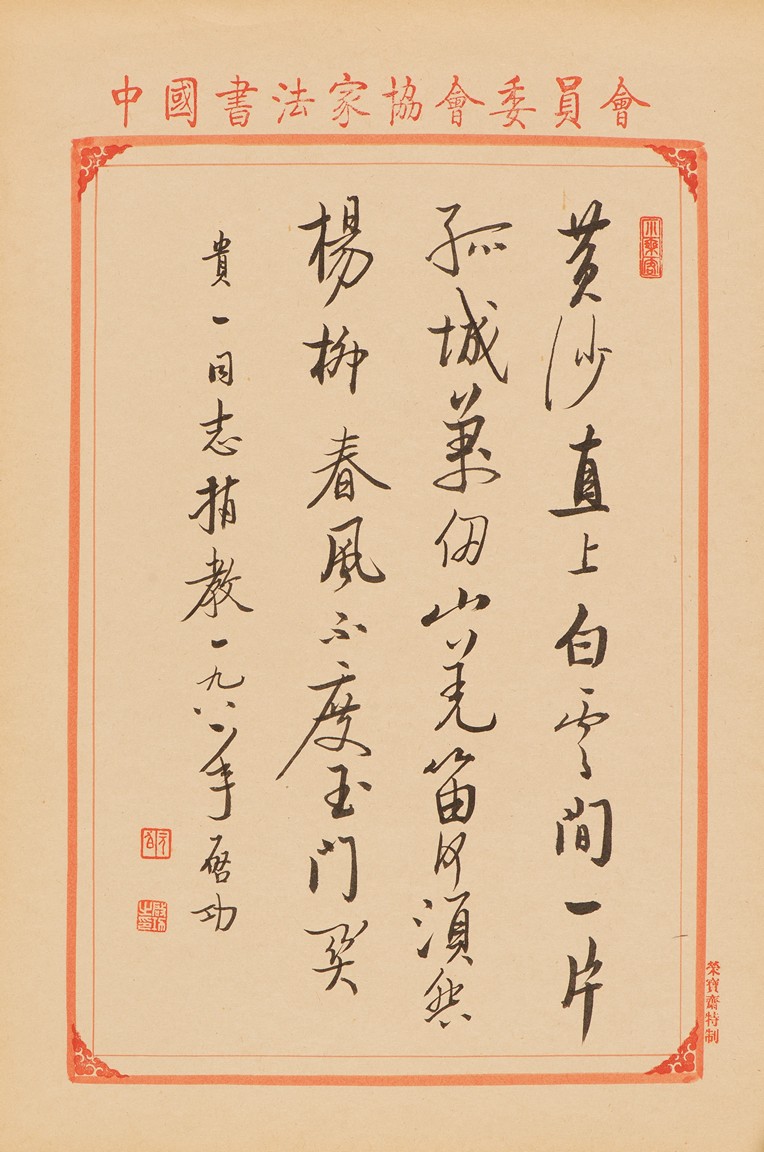 中國書法家協會委員會
小乘客
黄沙直上白雲間一片
孤城萬仞山羌笛何須怨
楊柳春風不度玉門關
貴一同志指教一九八一年啓功
元白
啟功之印
榮寶齋特制